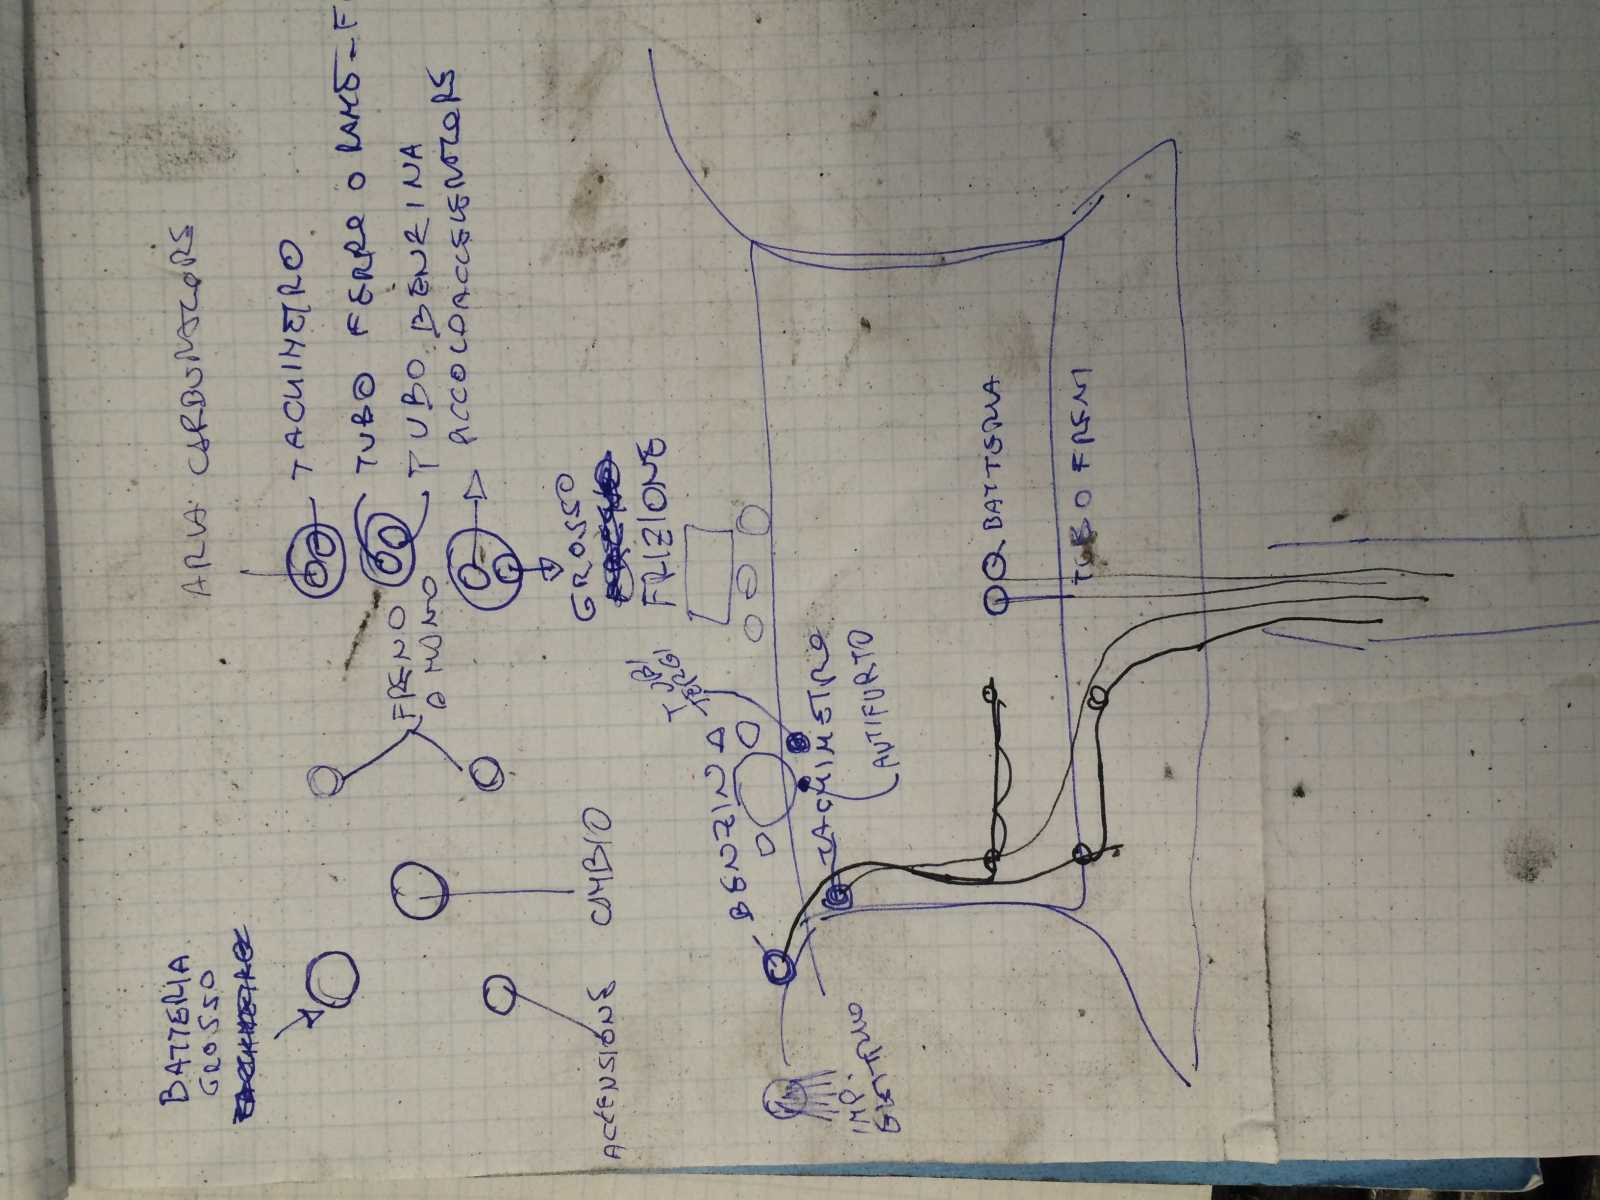 BATTERIA
GROSSO
ARIA CARBURATORE
TACHIMETRO
TUBO FERRO O RAME-F
TUBO BENZINA
ACCELERATORE
FRENO
A MANO
GROSSO
FRIZIONE
CAMBIO
ACCENSIONE
TUBI
TERGI
BENZINA
TACHIMETRO
ANTIFURTO
BATTERIA
TUBO FRENI
IMP.